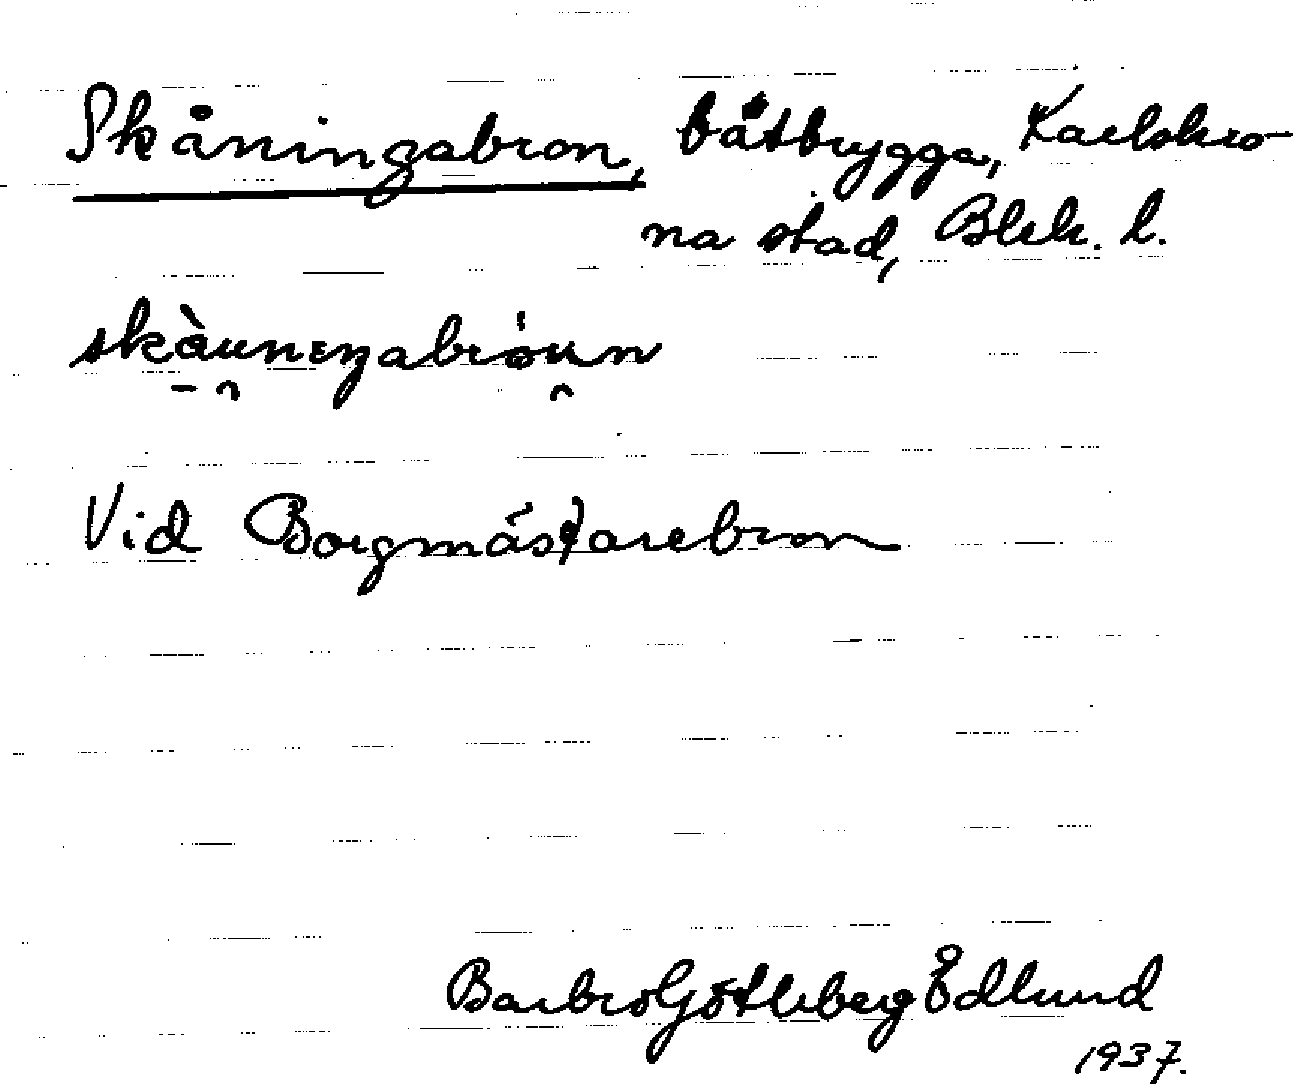 Skåningabron, båtbrygga, Karlskro-
na stad, Blek. l.
skàunıŋabròun
Vid Borgmästarebron
Barbro Götleberg Ödlund
1937.